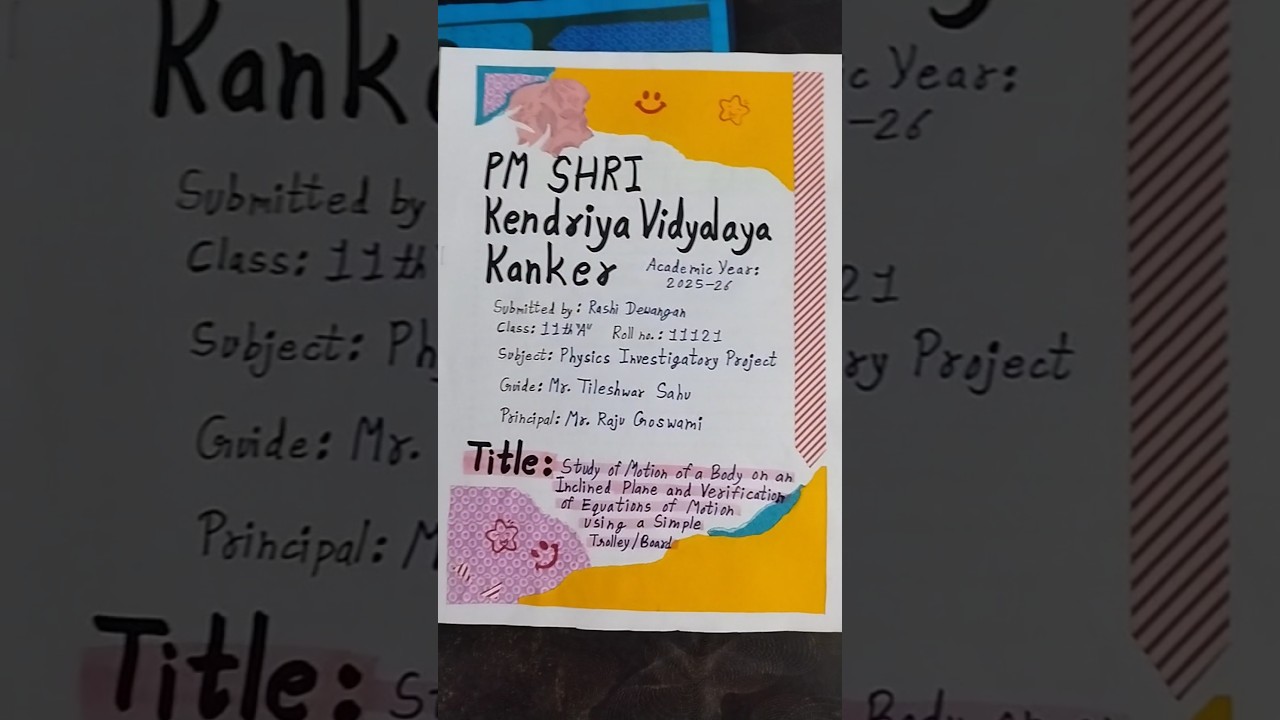 PM SHRI
Kendriya Vidyalaya
Kanker
Academic Year:
2025-26
Submitted by: Rashi Dewangan
Class: 11th "A" Roll no.: 11121
Subject: Physics Investigatory Project
Guide: Mr. Tileshwar Sahu
Principal: Mr. Raju Goswami
Title: Study of Motion of a Body on an
Inclined Plane and Verification
of Equations of Motion
using a Simple
Trolley/Board